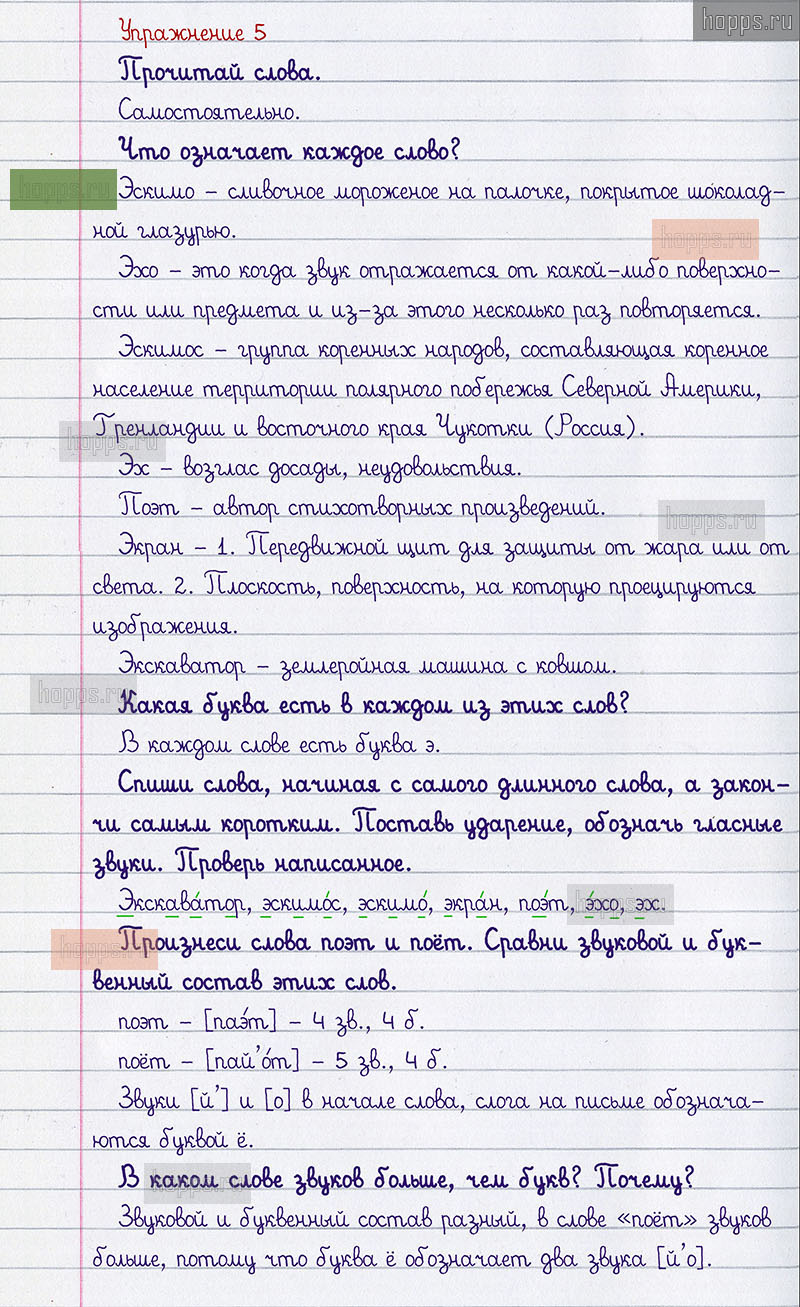 hopps.ru
Упражнение 5
Прочитай слова.
Самостоятельно.
Что означает каждое слово?
hopps.ru
Эскимо – сливочное мороженое на палочке, покрытое шоколад-
ной глазурью.
hopps.ru
Эхо – это когда звук отражается от какой-либо поверхно-
сти или предмета и из-за этого несколько раз повторяется.
Эскимос – группа коренных народов, составляющая коренное
население территории полярного побережья Северной Америки,
Гренландии и восточного края Чукотки (Россия).
hopps.ru
Эх – возглас досады, неудовольствия.
Поэт – автор стихотворных произведений.
hopps.ru
Экран – 1. Передвижной щит для защиты от жара или от
света. 2. Плоскость, поверхность, на которую проецируются
изображения.
Экскаватор – землеройная машина с ковшом.
hopps.ru
Какая буква есть в каждом из этих слов?
В каждом слове есть буква э.
Спиши слова, начиная с самого длинного слова, а закон-
чи самым коротким. Поставь ударение, обозначь гласные
звуки. Проверь написанное.
Экскава́тор, эскимо́с, эскимо́, экра́н, поэ́т, э́хо, эх.
hopps.ru
hopps.ru
Произнеси слова поэт и поёт. Сравни звуковой и бук-
венный состав этих слов.
поэт – [паэ́т] – 4 зв., 4 б.
поёт – [пай’о́т] – 5 зв., 4 б.
Звуки [й’] и [о] в начале слова, слога на письме обознача-
ются буквой ё.
В каком слове звуков больше, чем букв? Почему?
hopps.ru
Звуковой и буквенный состав разный, в слове «поёт» звуков
больше, потому что буква ё обозначает два звука [й’о].